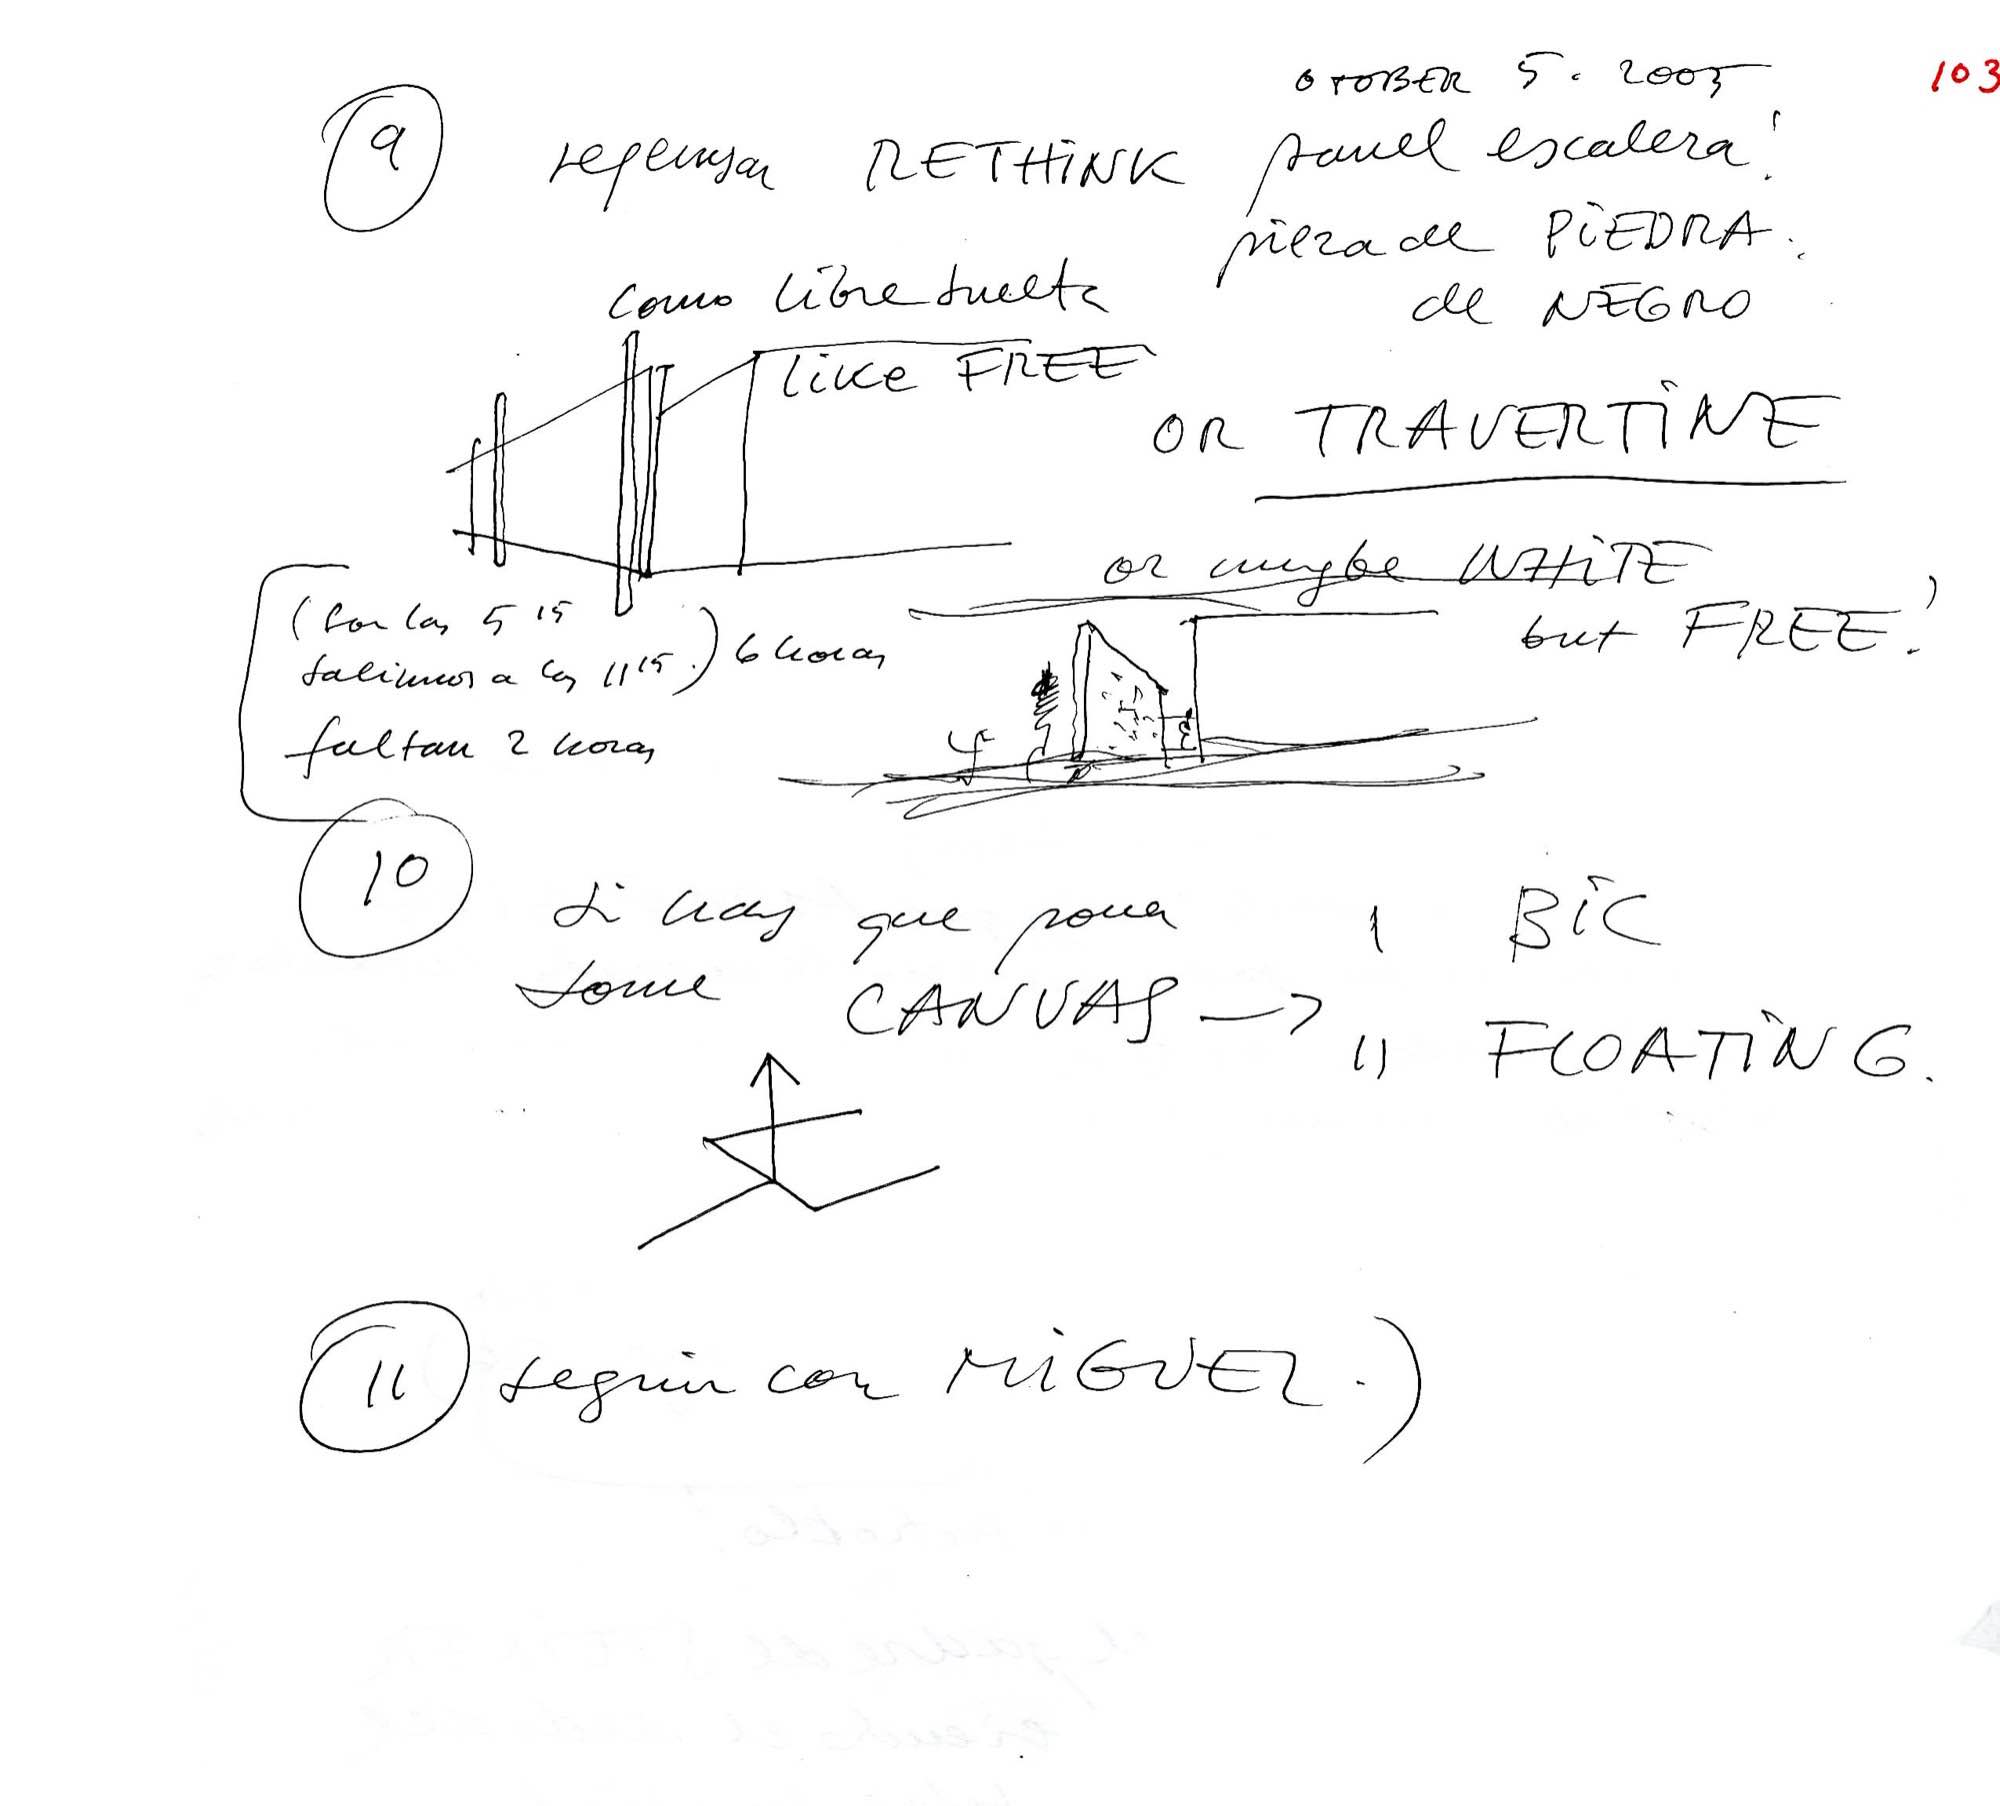 OTOBER 5. 2005
103
9 repensar RETHINK panel escalera!
pieza de PIEDRA.
de NEGRO
como libre suelta
like FREE
OR TRAVERTINE
or maybe WHITE
but FREE!
(son las 5 15
salimos a las 11 15.) 6 horas
faltan 2 horas
10
si hay que poner 1 BIC
some CANVAS → 11 FLOATING.
11 seguir con MIGUEL.)